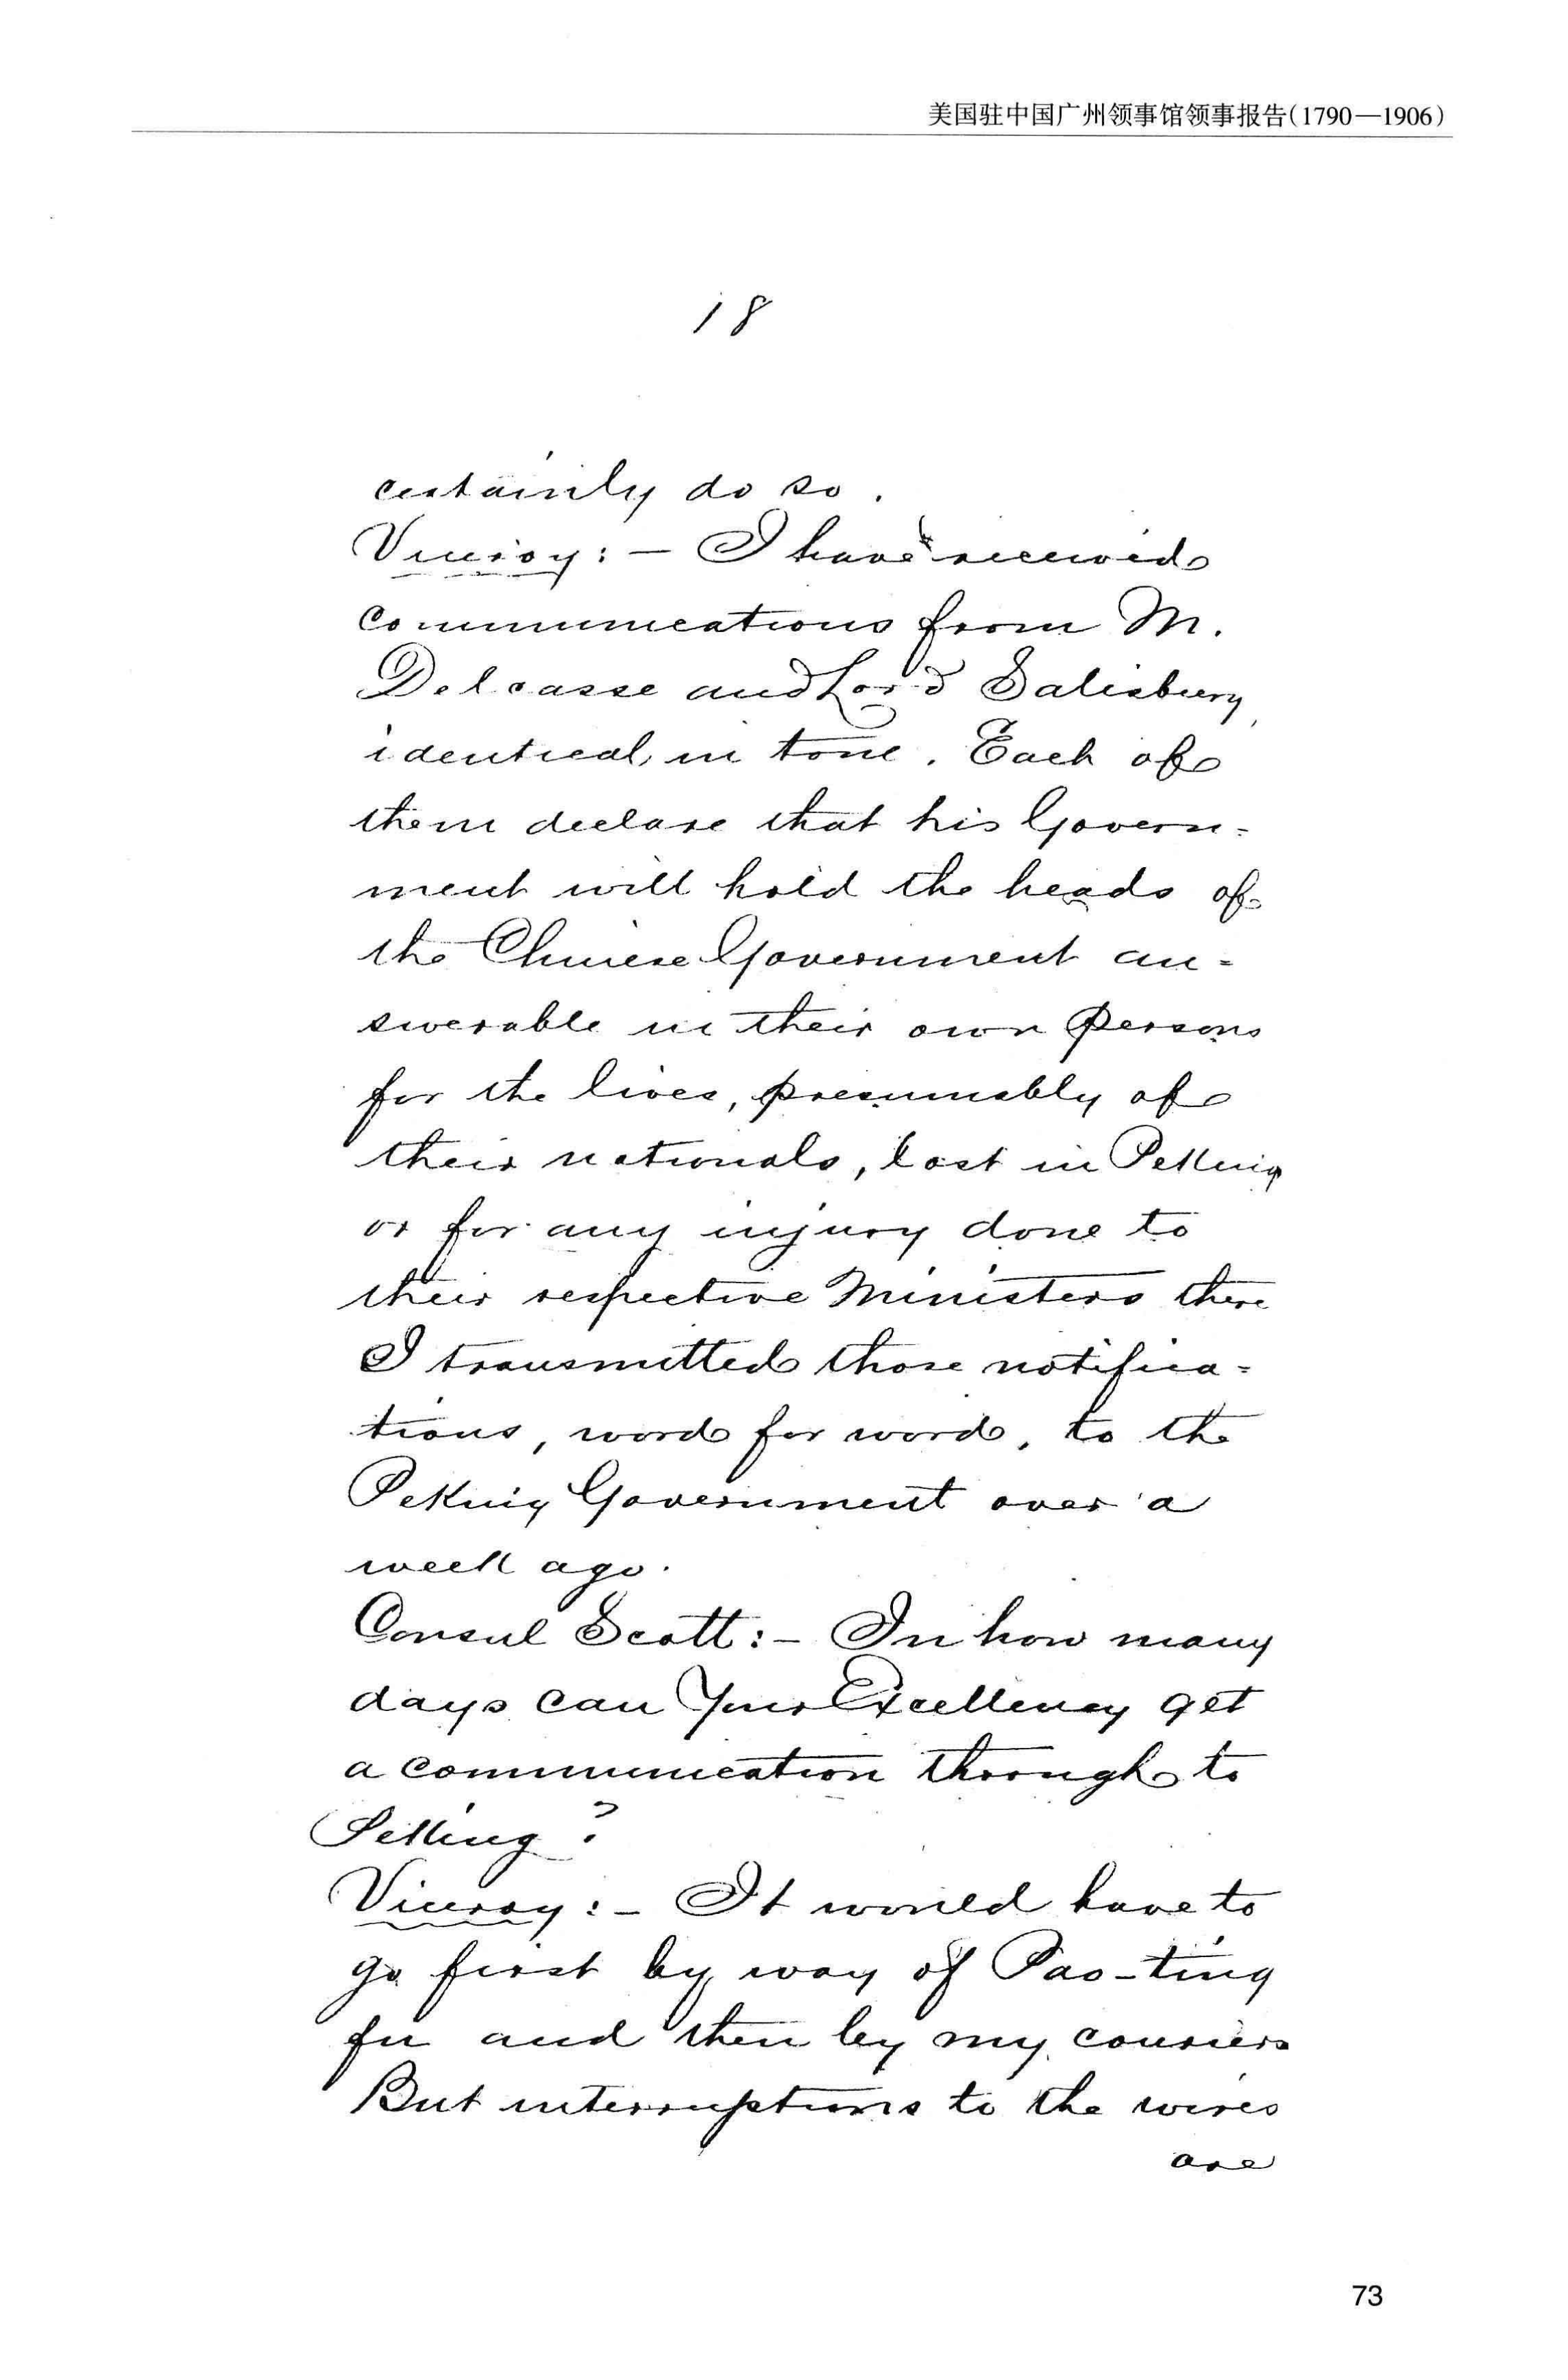 美国驻中国广州领事馆领事报告(1790—1906)
18
certainly do so.
Viceroy:— I have received
communications from M.
Delcasse and Lord Salisbury,
identical in tone. Each of
them declare that his Govern-
ment will hold the heads of
the Chinese Government an-
swerable in their own persons
for the lives, presumably of
their nationals, lost in Peking
or for any injury done to
their respective Ministers there
I transmitted those notifica-
tions, word for word, to the
Peking Government over a
week ago.
Consul Scott:— In how many
days can Your Excellency get
a communication through to
Peking?
Viceroy:— It would have to
go first by way of Pao-ting
fu and then by my couriers
But interruptions to the wires
are
73